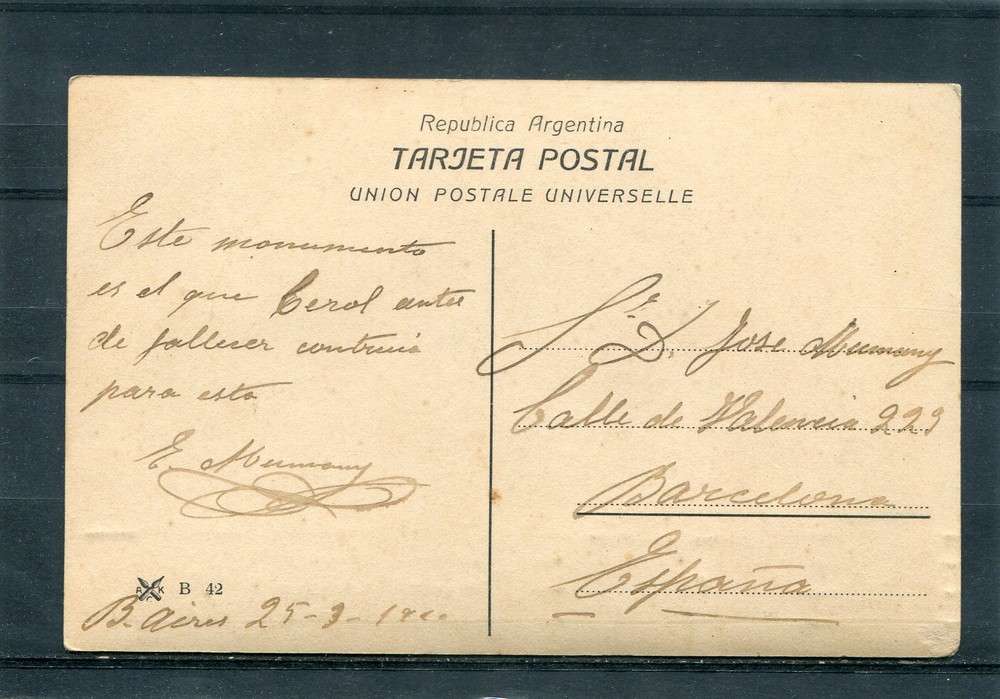 Republica Argentina
TARJETA POSTAL
UNION POSTALE UNIVERSELLE
Este monumento
es el que Cerol antes
de fallecer contruia
para esta
E. Mumany
B 42
B. Aires 25-3-
Sr. D. Jose Mumany
Calle de Valencia 223
Barcelona
España